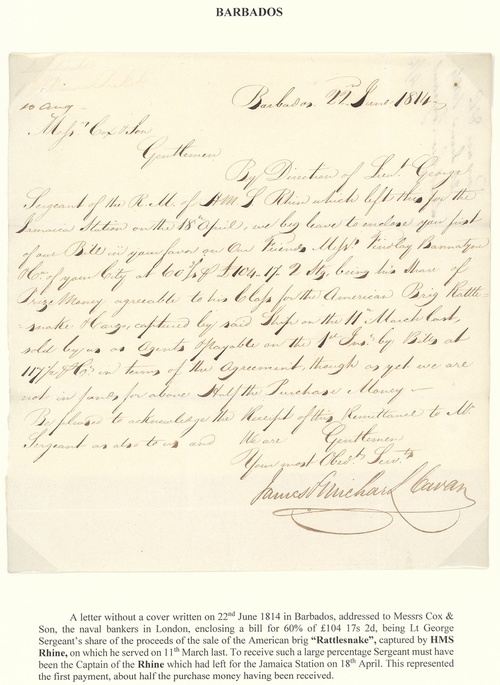 BARBADOS
10 Aug
Barbados 22d June 1814
Messrs Cox & Son
Gentlemen
By Direction of Lieut. George
Sergeant of the R.M. of H M S Rhin which left this for the
Jamaica Station on the 18th April, we beg leave to enclose you first
of our Bill in your favor on Our Friends Messrs Finlay Bannatyne
& Co. of your City at 60 £104.17.2 Stg. being his Share of
Prize Money agreeable to his Class for the American Brig Rattle-
snake & Cargo, captured by said Ship on the 11th March last,
sold by us as Agents & Payable on the 1st Inst. by Bills at
in terms of the Agreement, though as yet we are
not in funds for above Half the Purchase Money —
Be pleased to acknowledge the Receipt of this Remittance to Mr
Sergeant as also to us and We are Gentlemen
Your most Obedt. Servts
James & Michael Cavan
A letter without a cover written on 22nd June 1814 in Barbados, addressed to Messrs Cox &
Son, the naval bankers in London, enclosing a bill for 60% of £104 17s 2d, being Lt George
Sergeant's share of the proceeds of the sale of the American brig "Rattlesnake", captured by HMS
Rhine, on which he served on 11th March last. To receive such a large percentage Sergeant must have
been the Captain of the Rhine which had left for the Jamaica Station on 18th April. This represented
the first payment, about half the purchase money having been received.